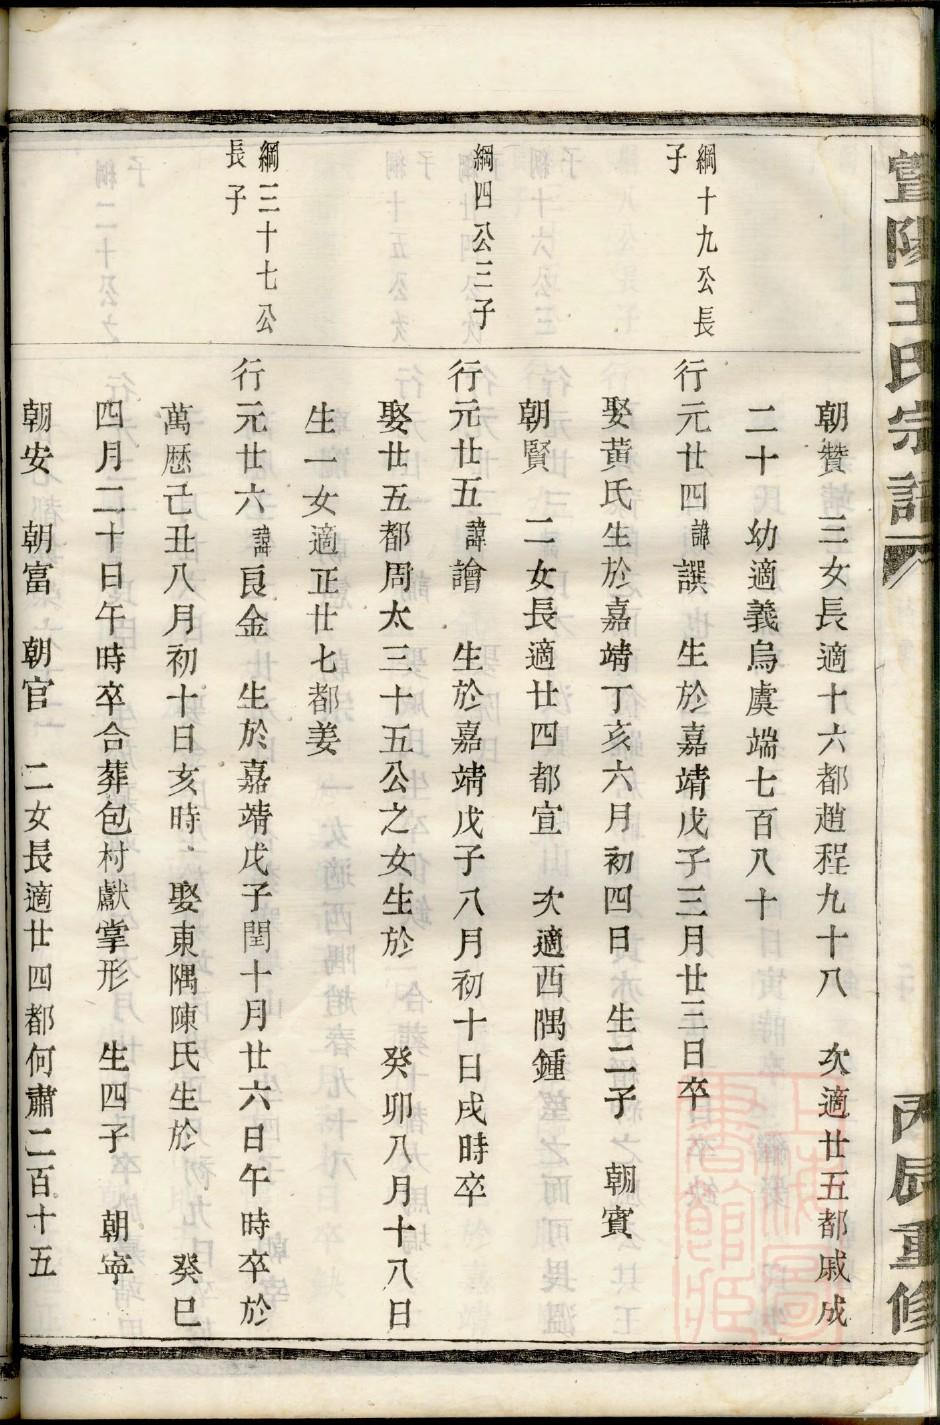 暨陽王氏宗譜
丙辰重修
朝贊　三女長適十六都趙程九十八　次適廿五都戚成
二十　幼適義烏虞端七百八十
綱十九公長
子
行元廿四諱譔　生於嘉靖戊子三月廿三日卒
娶黃氏生於嘉靖丁亥六月初四日　生二子　朝賓
朝賢　二女長適廿四都宣　次適西隅鍾
綱四公三子
行元廿五諱譮　生於嘉靖戊子八月初十日戌時卒
娶廿五都周太三十五公之女生於　癸卯八月十八日
生一女適正廿七都姜
綱三十七公
長子
行元廿六諱良金　生於嘉靖戊子閏十月廿六日午時卒於
萬歷己丑八月初十日亥時　娶東隅陳氏生於　癸巳
四月二十日午時卒合葬包村獻掌形　生四子　朝寧
朝安　朝富　朝官　二女長適廿四都何肅二百十五